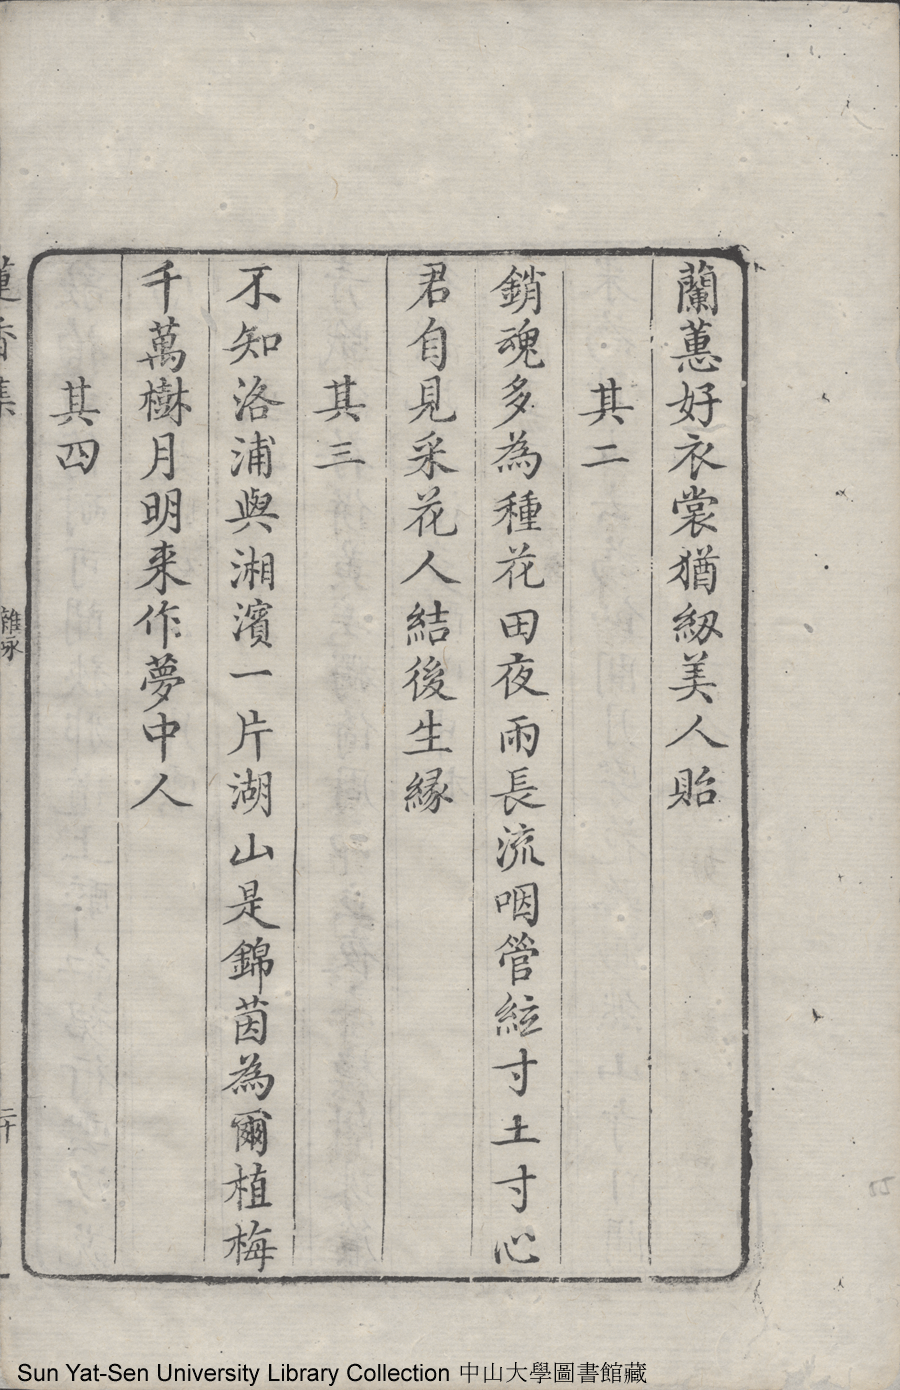 蘭蕙好衣裳猶紉美人貽
其二
銷魂多為種花田夜雨長流咽管絃寸土寸心
君自見采花人結後生緣
其三
不知洛浦與湘濱一片湖山是錦茵為爾植梅
千萬樹月明来作夢中人
其四
蓮香集
雜詠
二十
Sun Yat-Sen University Library Collection 中山大學圖書館藏